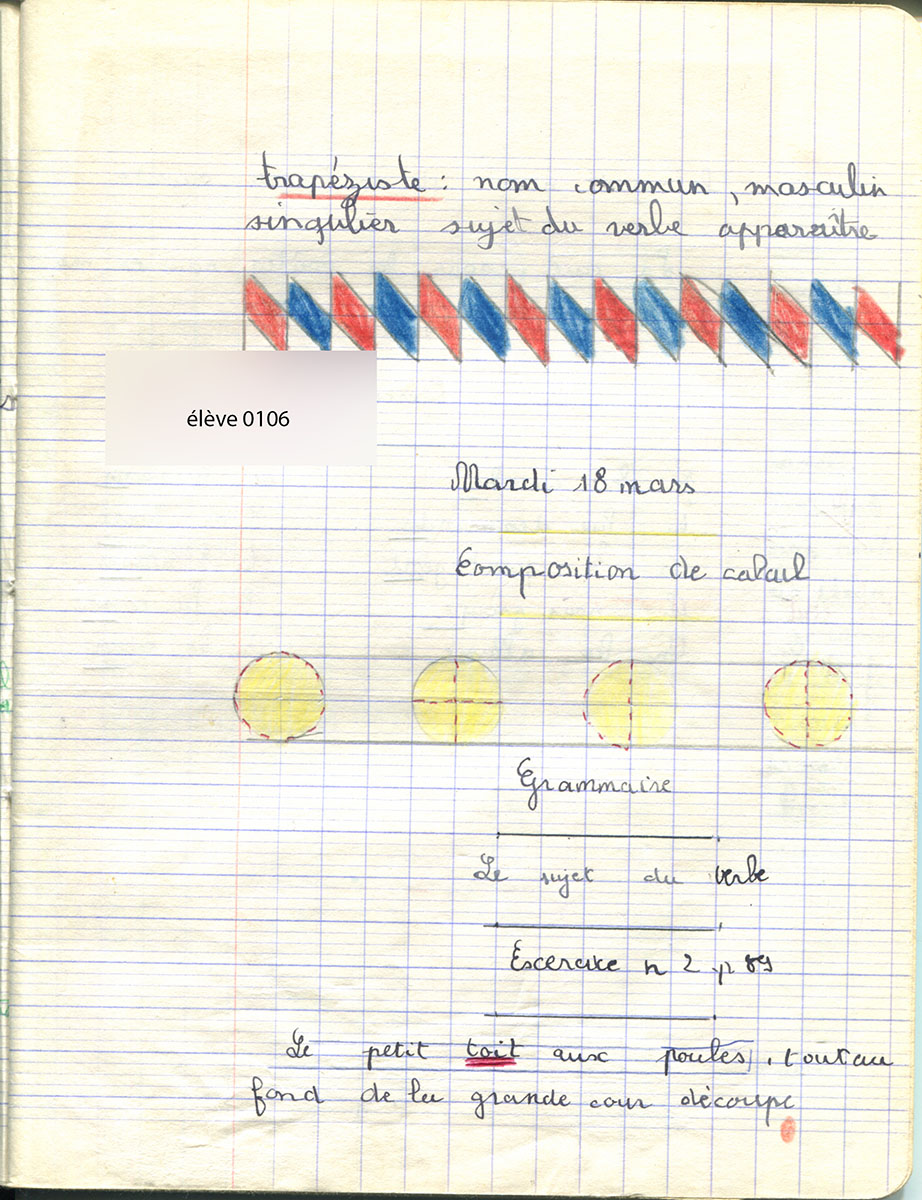 trapéziste : nom commun, masculin
singulier sujet du verbe apparaître
élève 0106
Mardi 18 mars
Composition de calcul
Grammaire
Le sujet du verbe
Escercice n 2 p 89
Le petit toit aux poules, tout au
fond de la grande cour découpe